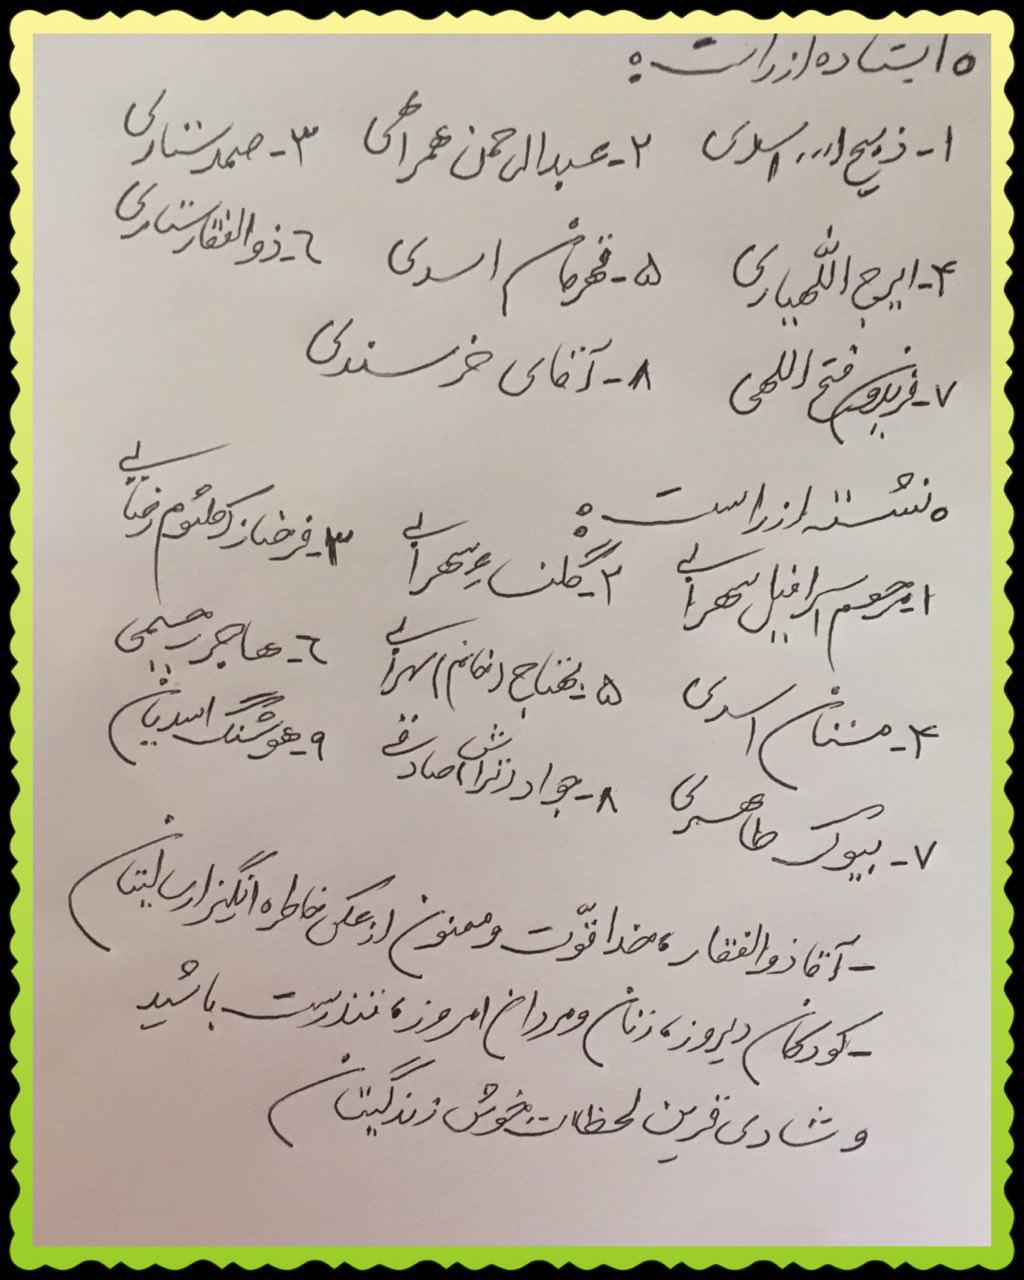 ه ایستاده از راست :
۱- ذبیح ا... اسدی ۲- عبدالرحمن همراهی ۳- صمد ستاری
۴- ایرج اللهیاری ۵- قهرمان اسدی ۶- ذوالفقار ستاری
۷- فریدون فتح اللهی ۸- آقای خرسندی
ه نشسته از راست :
۱- مرحوم اسرافیل سهرابی ۲- گلنساء سهرابی ۳- فرحناز کلثوم رضایی
۴- منان اسدی ۵- (خانم) سهرابی ۶- هاجر رحیمی
۷- بیوک طاهری ۸- جواد صادقی ۹- هوشنگ اسدیان
- آقا ذوالفقار، خدا قوّت و ممنون از عکس خاطره انگیز ارسالیتان
- کودکان دیروز، زنان و مردان امروز، تندرست باشید
و شادی قرین لحظات خوش زندگیتان